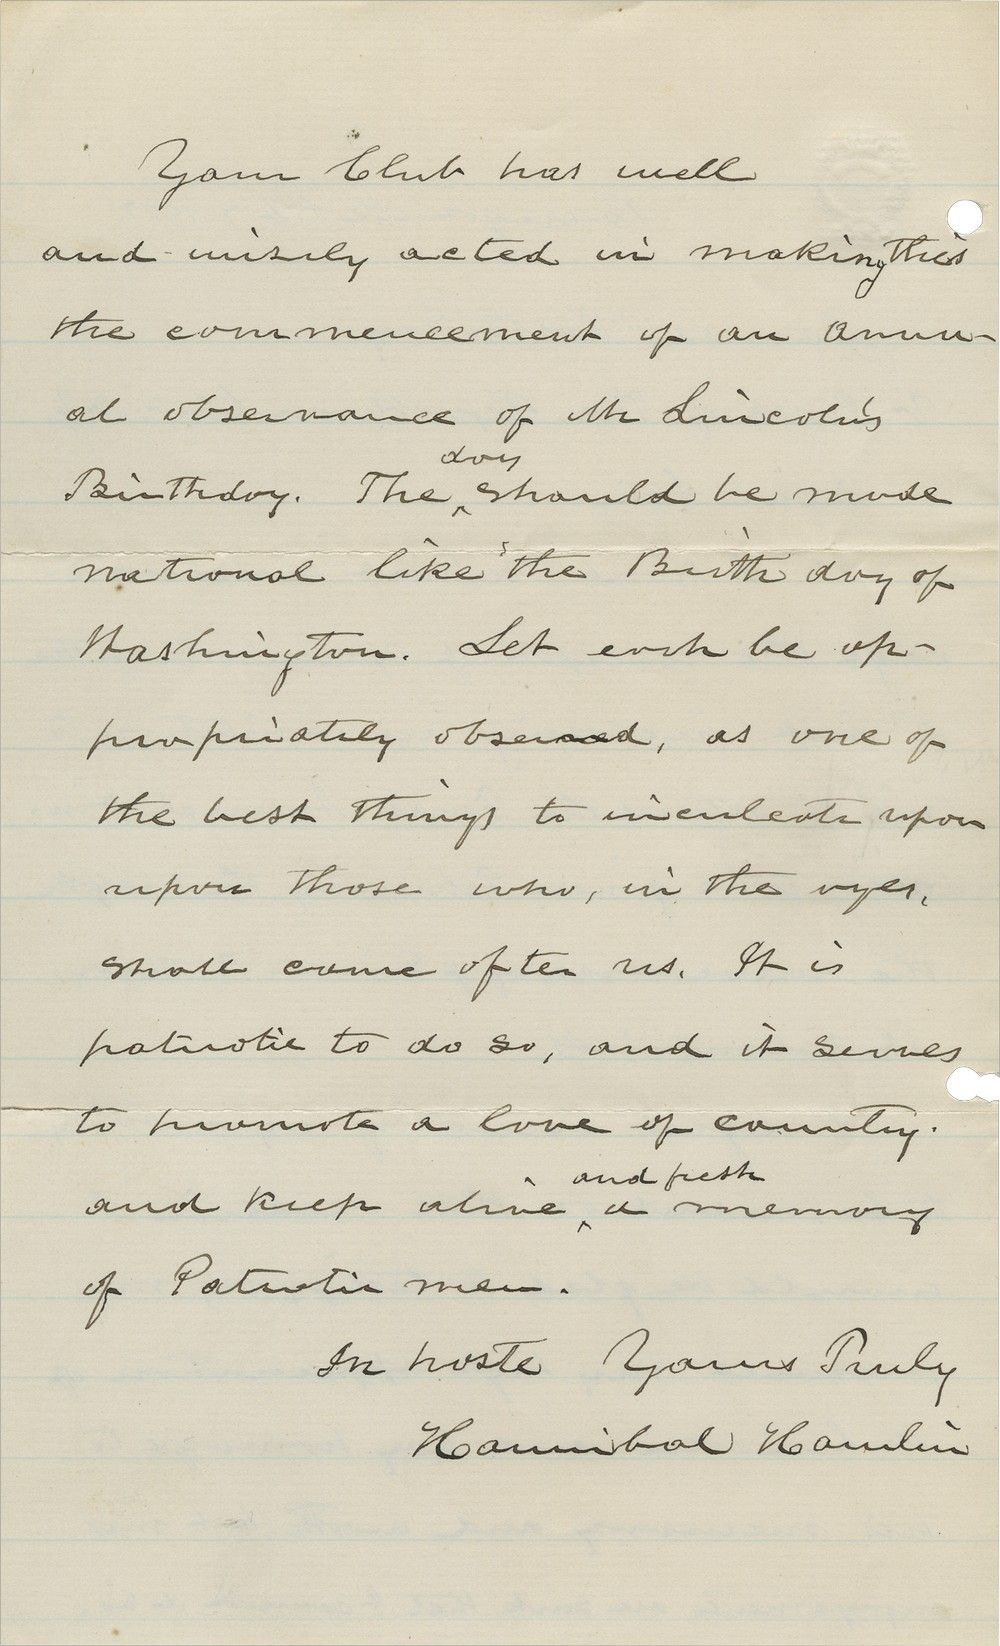 Your Club has well
and wisely acted in making this
the commencement of an annu-
al observance of Mr Lincoln's
Birthday. The day should be made
national like the Birth day of
Washington. Let each be ap-
propriately observed, as one of
the best things to inculcate upon
upon those who, in the ages,
shall come after us. It is
patriotic to do so, and it serves
to promote a love of country.
and keep alive and fresh a memory
of Patriotic men.
In haste Yours Truly
Hannibal Hamlin